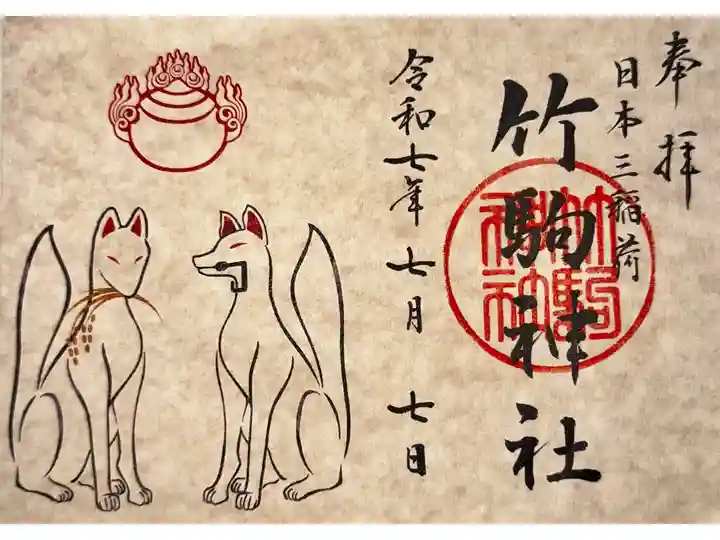 奉拝
日本三稲荷
竹駒神社
竹駒神社
令和七年 七月 七日